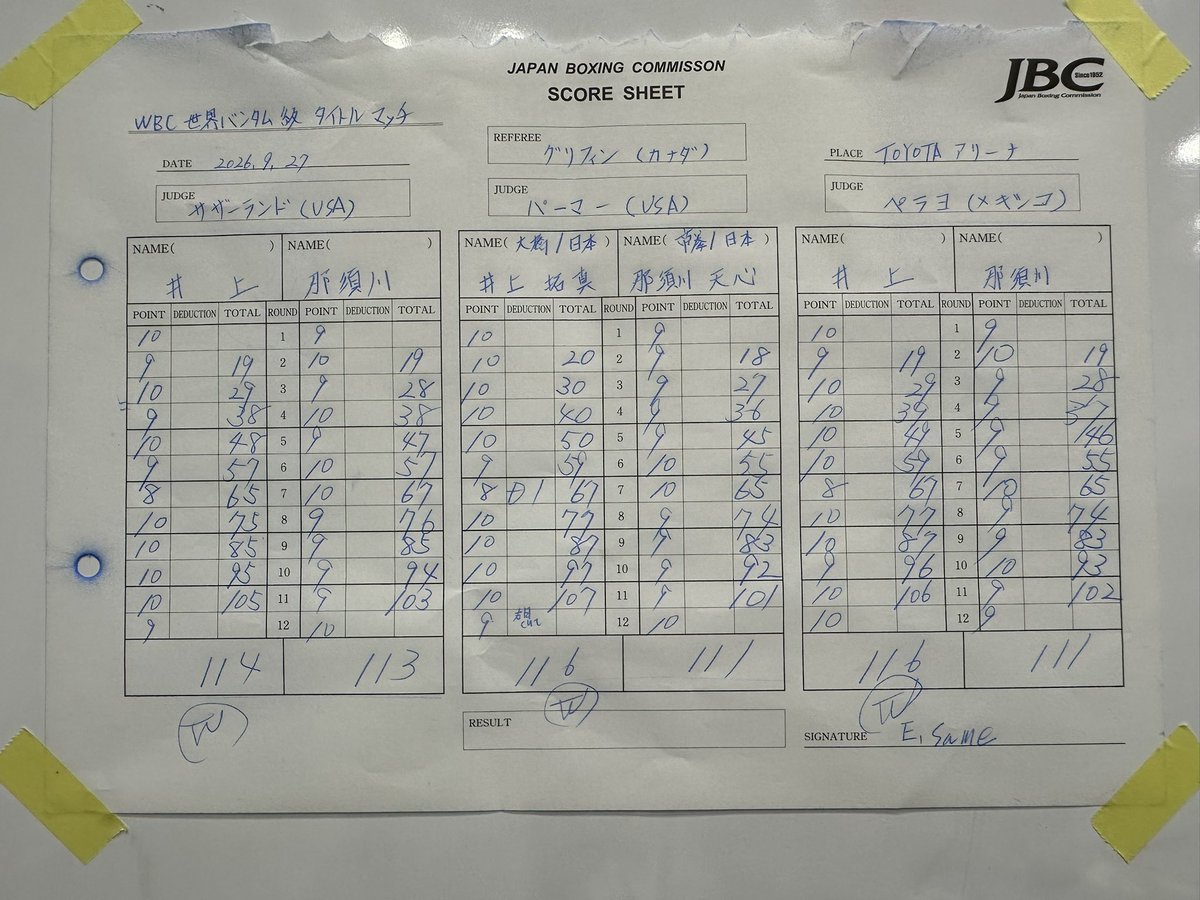 JAPAN BOXING COMMISSON
SCORE SHEET
JBC Since1952
Japan Boxing Commission
WBC 世界バンタム級 タイトルマッチ
DATE 2026.9.27
REFEREE グリフィン (カナダ)
PLACE TOYOTA アリーナ
JUDGE サザーランド (USA)
JUDGE パーマー (USA)
JUDGE ペラヨ (メキシコ)
NAME( ) NAME( ) NAME(大橋/日本) NAME(帝拳/日本) NAME( ) NAME( )
井上 那須川 井上 拓真 那須川 天心 井上 那須川
POINT DEDUCTION TOTAL ROUND POINT DEDUCTION TOTAL POINT DEDUCTION TOTAL ROUND POINT DEDUCTION TOTAL POINT DEDUCTION TOTAL ROUND POINT DEDUCTION TOTAL
10 1 9 10 1 9 10 1 9
9 19 2 10 19 10 20 2 9 18 9 19 2 10 19
10 29 3 9 28 10 30 3 9 27 10 29 3 9 28
9 38 4 10 38 10 40 4 9 36 10 39 4 9 37
10 48 5 9 47 10 50 5 9 45 10 49 5 9 46
9 57 6 10 57 9 59 6 10 55 10 59 6 9 55
8 65 7 10 67 8 D1 67 7 10 65 8 67 7 10 65
10 75 8 9 76 10 77 8 9 74 10 77 8 9 74
10 85 9 9 85 10 87 9 9 83 10 87 9 9 83
10 95 10 9 94 10 97 10 9 92 9 96 10 10 93
10 105 11 9 103 10 107 11 9 101 10 106 11 9 102
9 12 10 9 12 10 10 12 9
114 113 116 111 116 111
W W W
RESULT
SIGNATURE E. Some